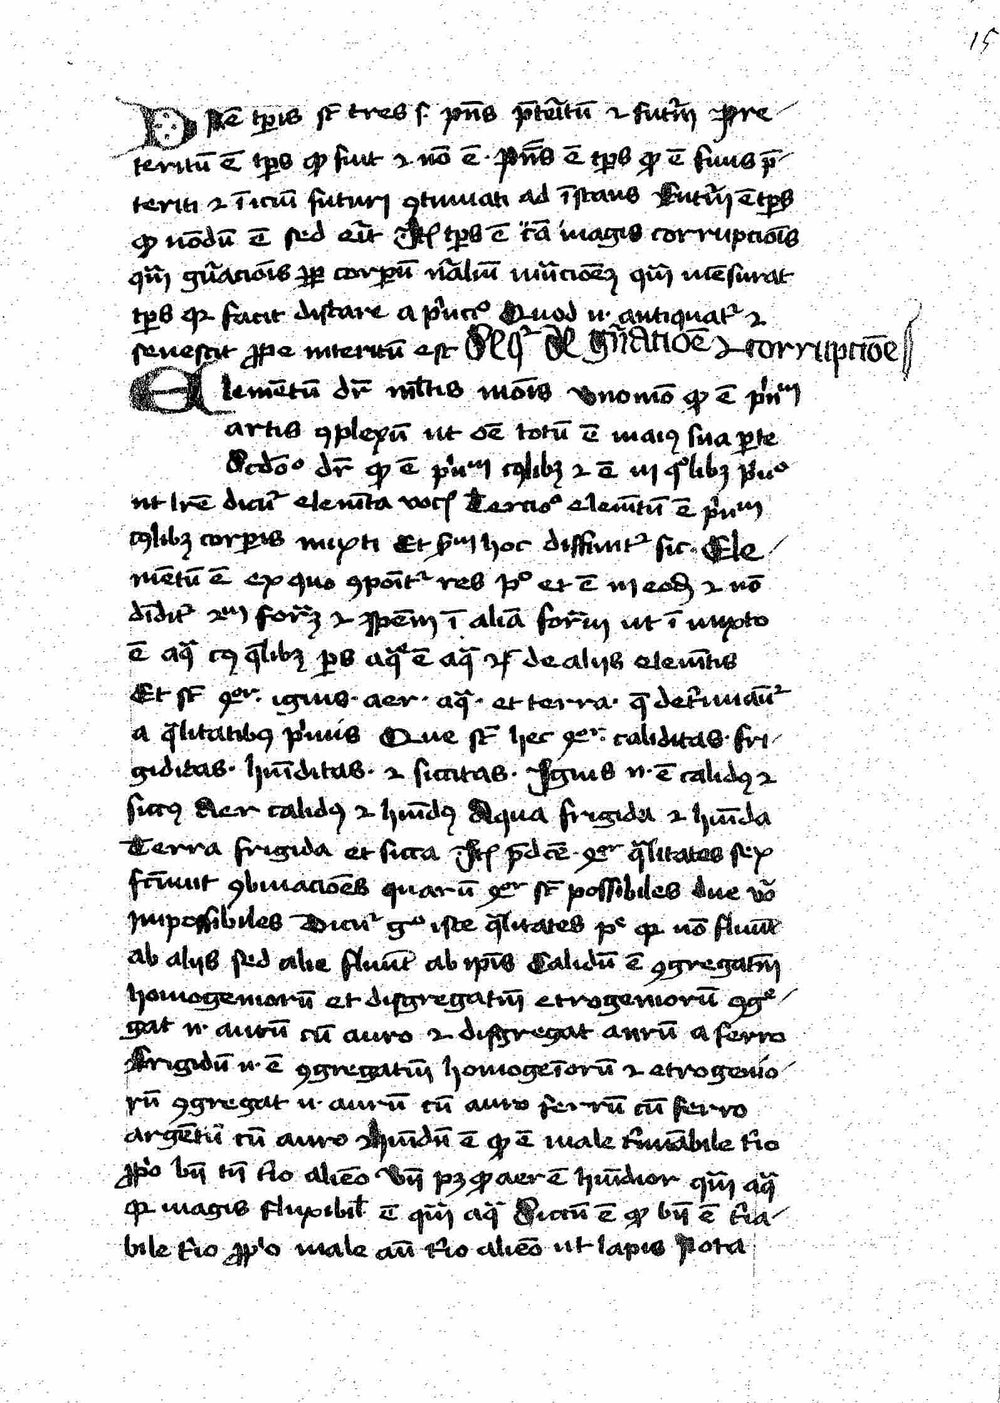 15
Ptē tp̄is st̄ tres s. pn̄s p̄teritū ⁊ futur̄ Pre
teritū ē tp̄s qd̓ fuit ⁊ nō ē. Pn̄s ē tp̄s qd̓ ē finis p̄
teriti ⁊ īiciū futuri ꝯtinuati ad īstans Futur̄ ē tp̄s
qd̓ nōdū ē sed erit Itē tp̄s ē cā magis corrupcōis
qm̄ gn̄acōis ꝓp corpū nāliū qm̄ mēsurat
tp̄s qꝛ facit distare a Quod n. antiquatr ⁊
senescit ꝓpe interitū est Seqr de gn̄acioē ⁊ corrupcioē
Elemētū dr̄ ml̄tis mōis Vnomō qd̓ ē pͥnm
artis ꝯplexū ut oē totū ē maiꝰ sua ꝑte
Scd̄o dr̄ qd̓ ē pͥnm cuiꝰlibꝫ ⁊ ē in qolibꝫ pͥuo
ut lr̄e dicūr elem̄ta vocꝭ Tercio elem̄tū ē pͥnm
cuiꝰlibꝫ corꝑis mixti Et hoc diffinitr sic. Ele
mētū ē ex quo ꝯpōitr res po et ē in eodꝫ ⁊ nō
dīditr form̄ ⁊ spēm ī aliā form̄ ut ī mixto
ē aqͣ cuiꝰ qͣlibꝫ ps aqͣ ē aqͣ de aliis elem̄tis
Et st̄ qͦr. ignis. aer. aqͣ. et terra. q̄ det̓minātr
a qͣlitatibꝰ pͥmis Que st̄ hec qͦr. caliditas. fri
giditas. hūiditas. ⁊ siccitas. Ignis n. ē calidꝰ ⁊
siccꝰ Aer calidꝰ ⁊ hūidꝰ Aqua frigida ⁊ hūida
Terra frigida et sicca Itē p̄dc̄e qͦr qͣlitates sex
fciunt ꝯbinacōes quarū qͦr st̄ possibiles due vͦ
impossibiles Dicūr gͦ iste qͣlitates pͤ qꝛ nō fluūt
ab aliis sed alie fluūt ab ip̄is Calidū ē ꝯgregatm̄
homogeniorū et disgregatm̄ etrogeniorū ꝯgͤ
gat n. aurū cū auro ⁊ disgregat aurū a ferro
Frigidū n. ē ꝯgregatm̄ homogēiorū ⁊ etrogenio
rū ꝯgregat n. aurū cū auro ferrū cū ferro
argētū cū auro hūidū ē qd̓ ē male t̓minābile t̓io
ꝓpͥo bn̄ tn̄ t̓io aliēo Vn̄ pꝫ qd̓ aer ē hūidior qm̄ aqͣ
qꝛ magis fluxibil̓ ē qm̄ aqͣ Siccū ē qd̓ bn̄ ē t̓ia
bile t̓io ꝓpͥo male aū t̓io aliēo ut lapis Nota